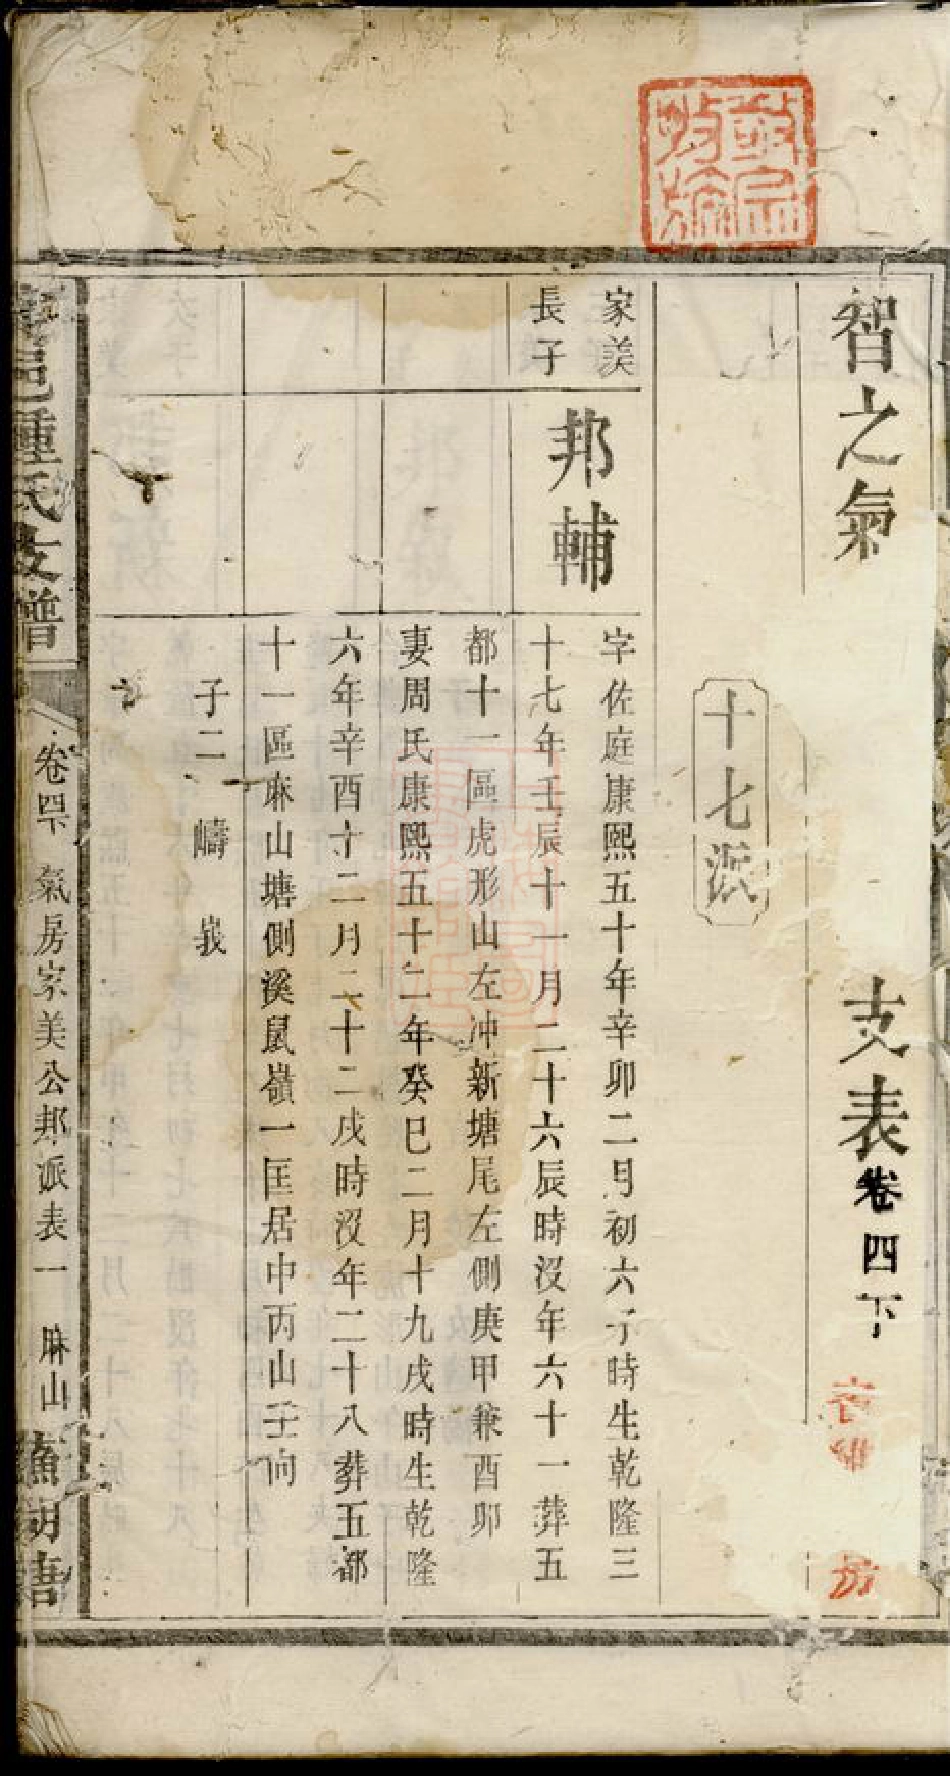 智之氣 支表卷四下
房
十七派
家美
長子
邦輔
字佐庭康熙五十年辛卯二月初六子時生乾隆三
十七年壬辰十一月二十六辰時沒年六十一葬五
都十一區虎形山左冲新塘尾左側庚甲兼酉卯
妻周氏康熙五十二年癸巳二月十九戌時生乾隆
六年辛酉十二月二十二戌時沒年二十八葬五都
十一區麻山塘側溪鼠嶺一匡居中丙山壬向
子二 嶹 峩
邑鍾氏支譜 卷四下 氣房家美公邦派表一 麻山